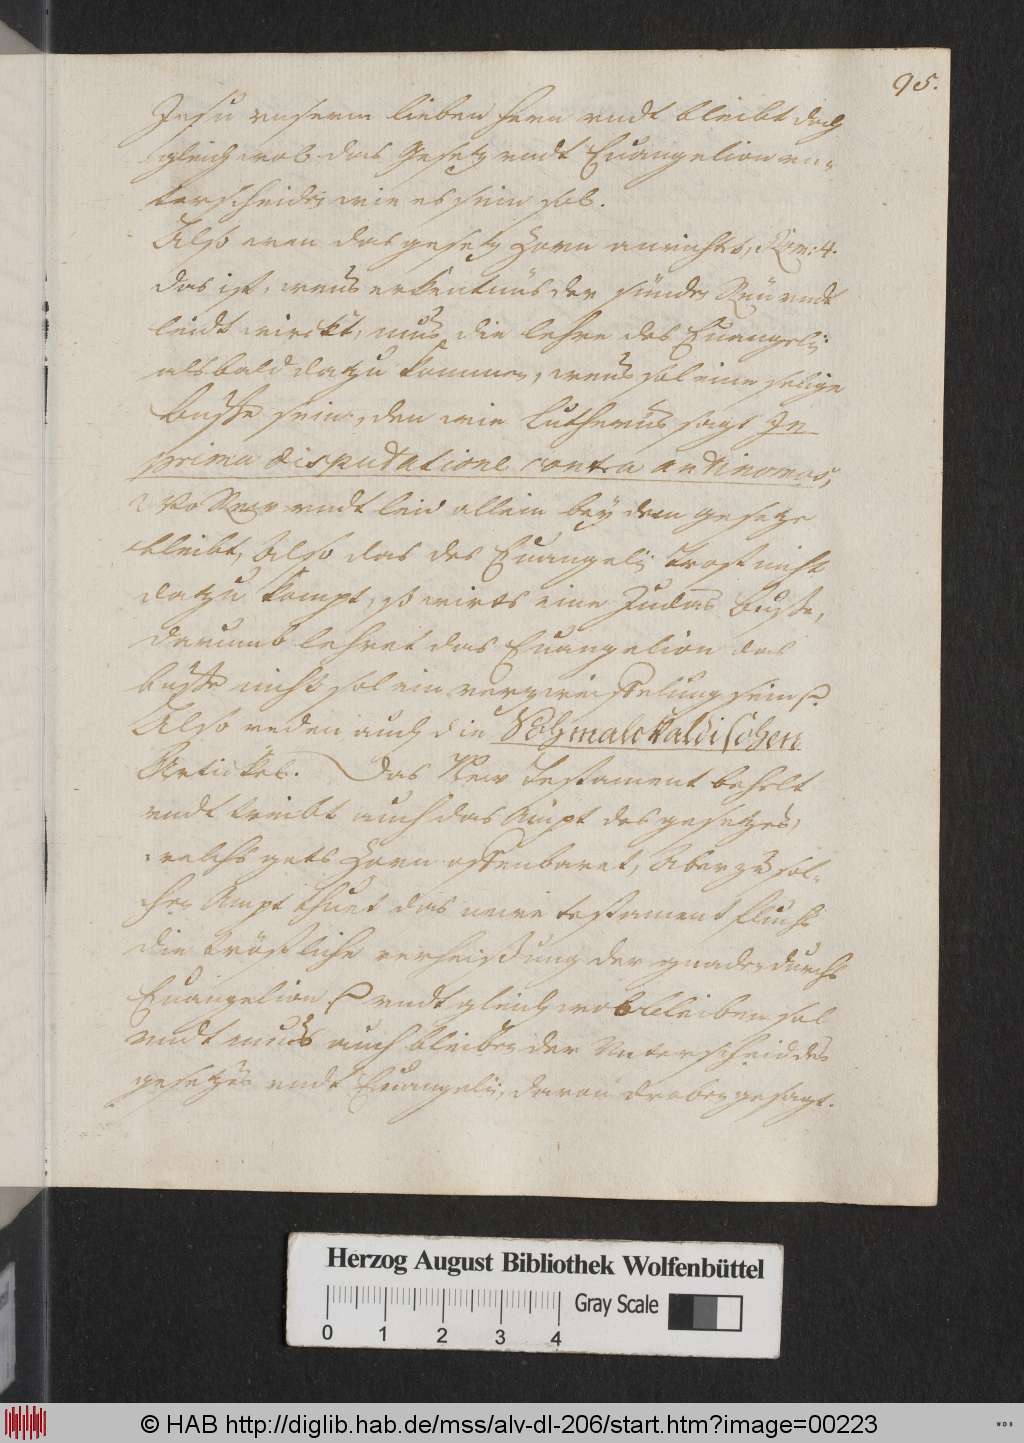 95.
Jesu unserm lieben Hern undt bleibt doch
gleichwol das Gesetz undt Euangelion un-
terscheiden wie es sein sol.
Also wen das gesetz Zorn anrichtet, Rom: 4.
das ist, wens erkentnus der sünden Reu undt
leidt wirckt, mus die lehre des Euangelij
alsbald datzu kommen, wens sol eine selige
busse sein, den wie Lutherus sagt In
prima disputatione contra antinomos,
Wo Rew undt leid allein bey dem gesetze
bleibt, Also das des Euangelij trost nicht
datzu kompt, so wirts eine Judas busse,
darumb lehret das Euangelion das
busse nicht sol ein verzweiffelung sein
Also reden auch die Schmalckaldischen
Artickel. Das New Testament behelt
undt treibt auch das Ampt des gesetzes,
welchs gots Zorn offenbaret, Aber zu sol-
chen Ampt thuet das neue testament flucks
die tröstliche verheissung der gnaden durchs
Euangelion undt gleichwol bleiben sol
undt muss auch bleiben der Unterscheid des
gesetzes undt Euangelij, davon droben gesagt.
Herzog August Bibliothek Wolfenbüttel
0 1 2 3 4
Gray Scale
© HAB http://diglib.hab.de/mss/alv-dl-206/start.htm?image=00223